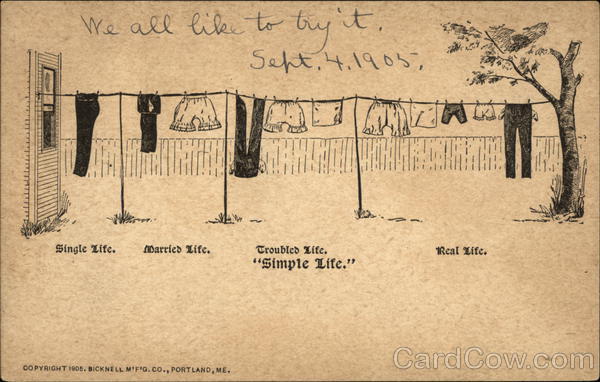 We all like to try it.
Sept. 4. 1905.
Single Life. Married Life. Troubled Life. Real Life.
"Simple Life."
COPYRIGHT 1905. BICKNELL M'F'G. CO., PORTLAND, ME.
CardCow.com